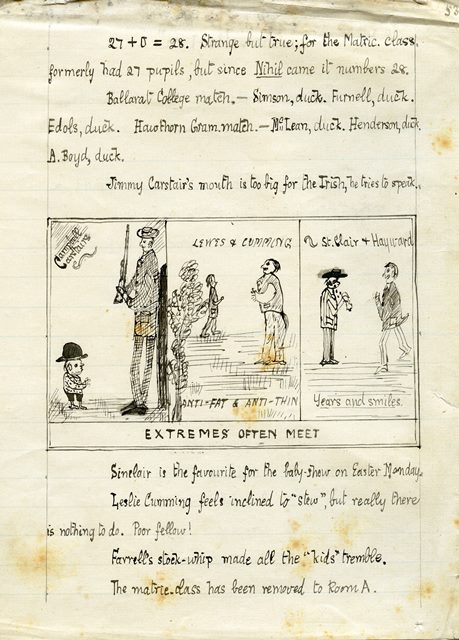 27 + 0 = 28. Strange but true; for the Matric. class,
formerly had 27 pupils, but since Nihil came it numbers 28.
Ballarat College match. — Simson, duck. Furnell, duck.
Edols, duck. Hawthorn Gram. match. — McLean, duck. Henderson, duck
A. Boyd, duck.
Jimmy Carstair's mouth is too big for the Irish, he tries to speak.
Campbell
Carstairs
LEWES & CUMMING
St. Clair & Hayward
ANTI-FAT & ANTI-THIN
Years and smiles.
EXTREMES OFTEN MEET
Sinclair is the favourite for the baby-show on Easter Monday.
Leslie Cumming feels inclined to "stew", but really there
is nothing to do. Poor fellow!
Farrell's stock-whip made all the "kids" tremble.
The matric-class has been removed to Room A.